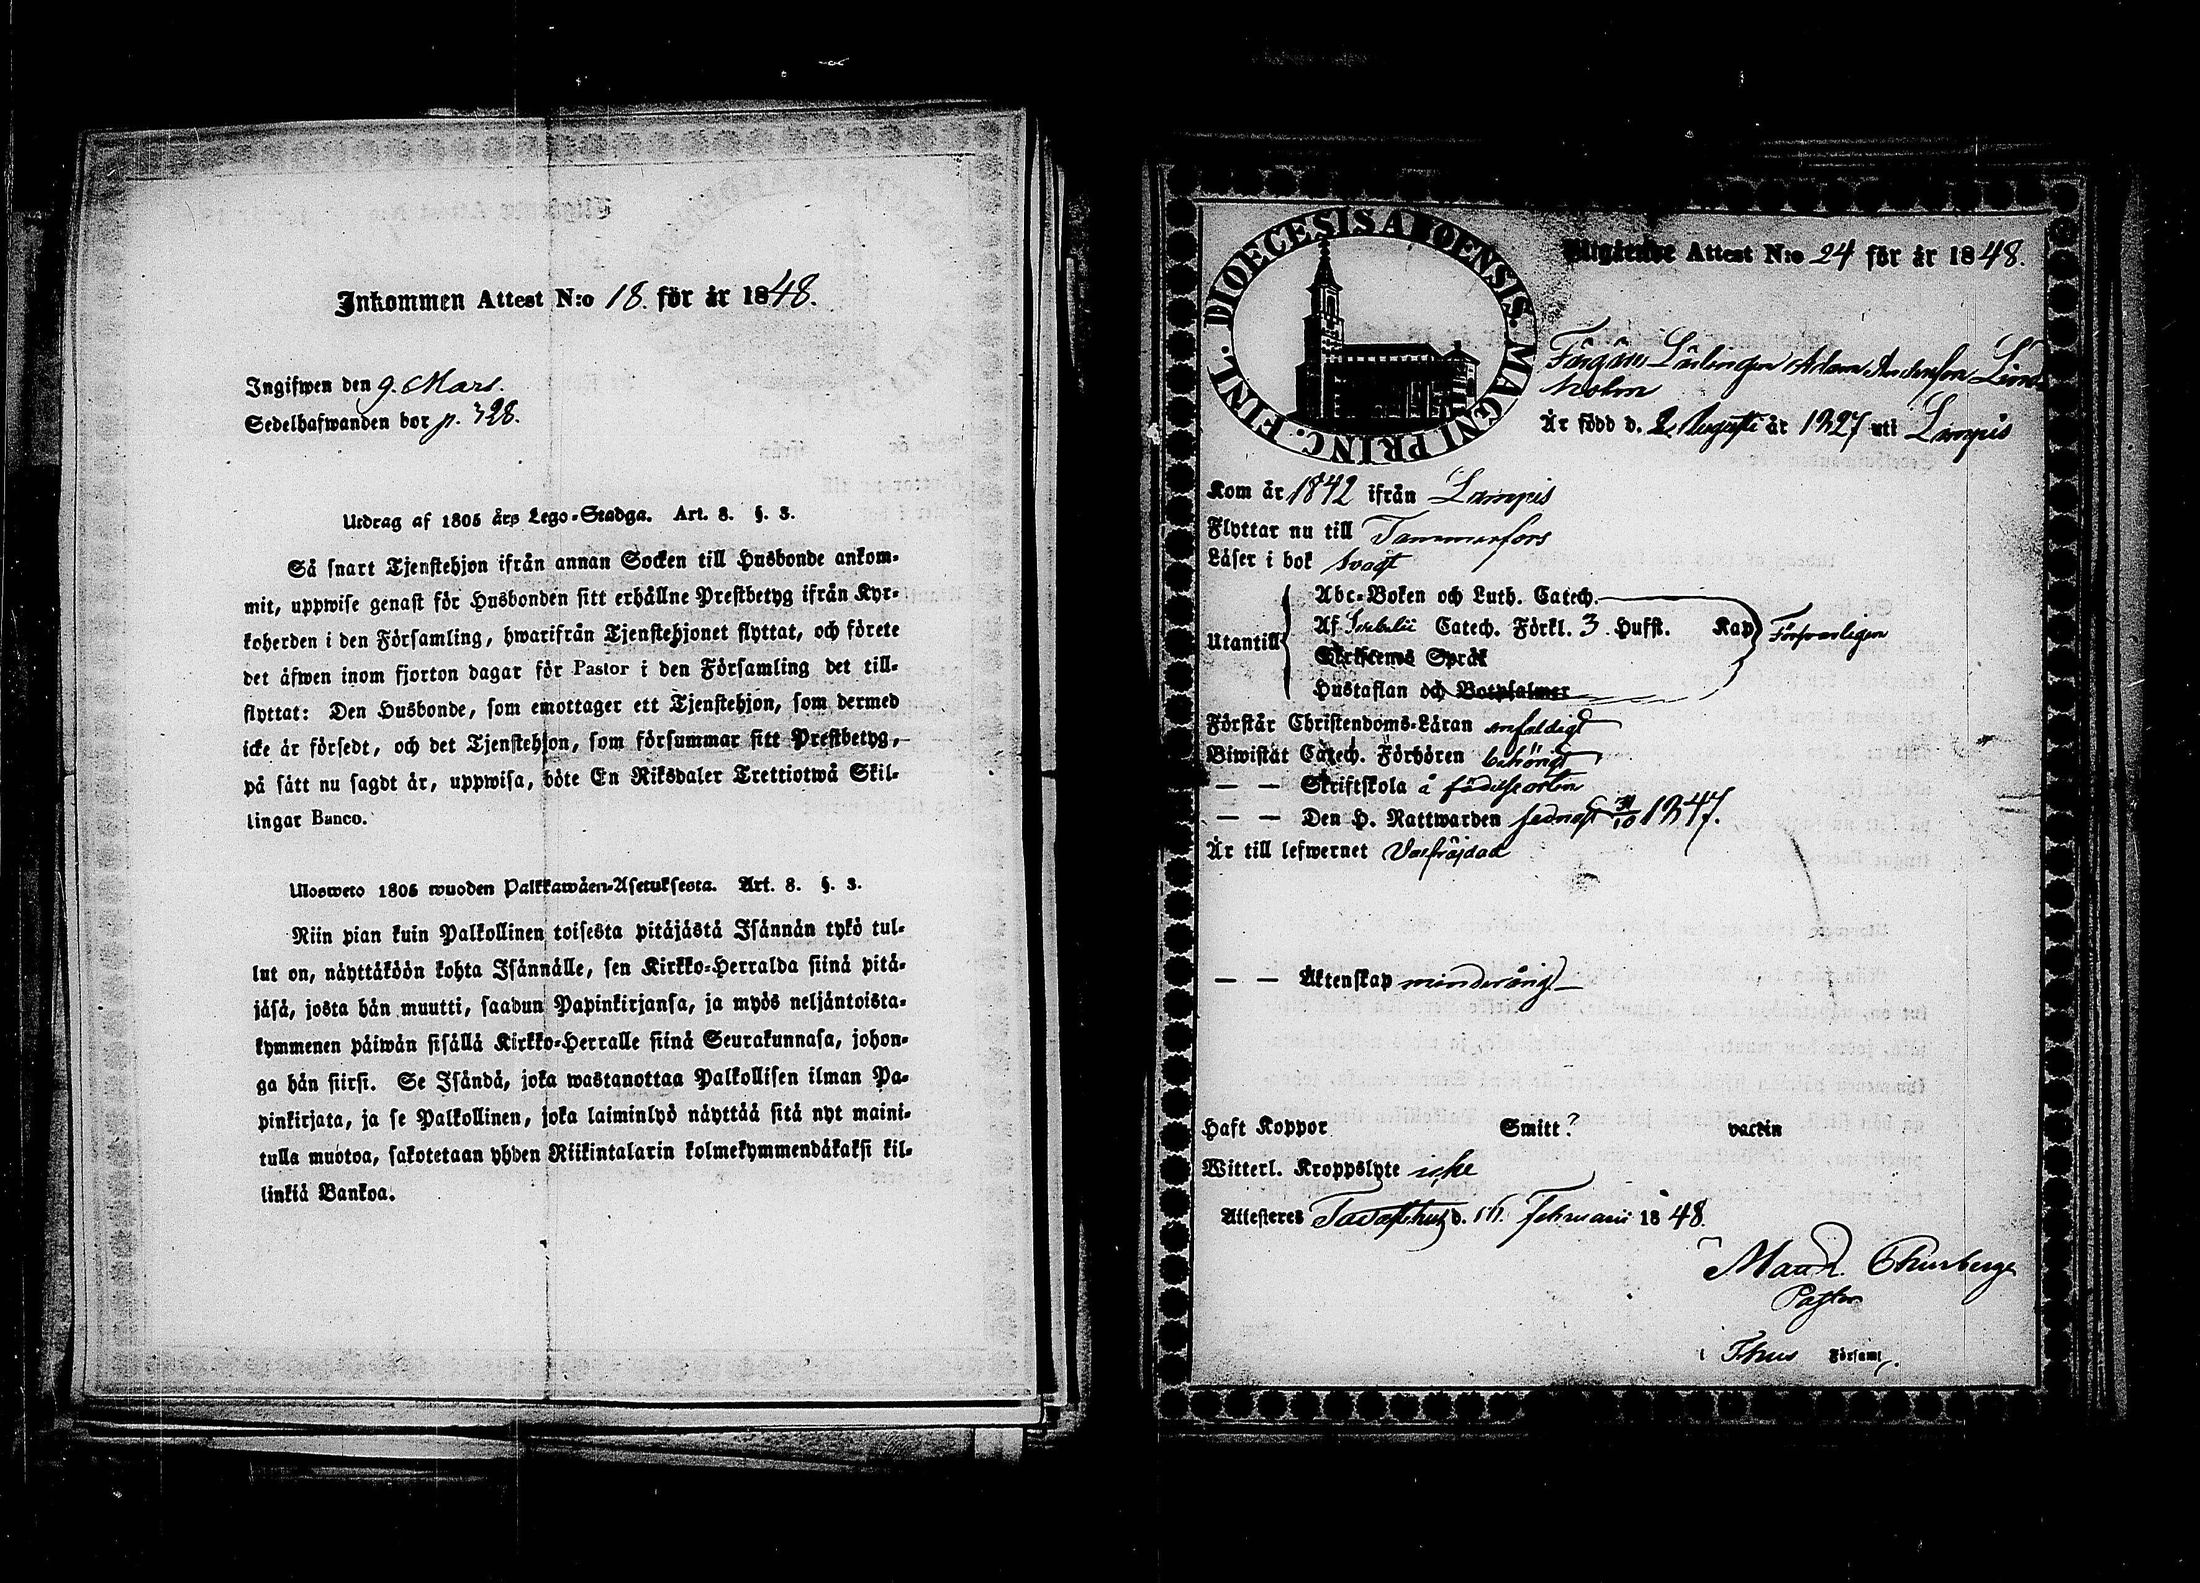 Inkommen Attest N:o 18. för år 1848.
Ingifwen den 9. Mars.
Sedelhafwanden bor p. 328.
Utdrag af 1805 års Lego-Stadga. Art. 8. §. 3.
Så snart Tjenstehjon ifrån annan Socken till Husbonde ankom-
mit, uppwise genast för Husbonden sitt erhållne Prestbetyg ifrån Kyr-
koherden i den Församling, hwarifrån Tjenstehjonet flyttat, och förete
det äfwen inom fjorton dagar för Pastor i den Församling det till-
flyttat: Den Husbonde, som emottager ett Tjenstehjon, som dermed
icke är försedt, och det Tjenstehjon, som försummar sitt Prestbetyg,
på sätt nu sagdt är, uppwisa, böte En Riksdaler Trettiotwå Skil-
lingar Banco.
Ulosweto 1805 wuoden Palkkawäen-Asetuksesta. Art. 8. §. 3.
Niin pian kuin Palkollinen toisesta pitäjästä Isännän tykö tul-
lut on, näyttäköön kohta Isännälle, sen Kirkko-Herralda siinä pitä-
jäsä, josta hän muutti, saadun Papinkirjansa, ja myös neljäntoista-
kymmenen päiwän sisällä Kirkko-Herralle siinä Seurakunnasa, johon-
ga hän siirsi. Se Isändä, joka wastanottaa Palkollisen ilman Pa-
pinkirjata, ja se Palkollinen, joka laiminlyö näyttää sitä nyt maini-
tulla muotoa, sakotetaan yhden Riikintalarin kolmekymmendäkaksi kil-
linkiä Bankoa.
DIOECESIS ABOENSIS. MAGNI PRINC. FINL.
Utgående Attest N:o 24 för år 1848.
Färgare Lärlingen Adam Andersson Lind-
holm
Är född d. 2 Augusti år 1827 uti Lampis
Kom år 1842 ifrån Lampis
Flyttar nu till Tammerfors
Läser i bok svagt
Abc-Boken och Luth. Catech.
Utantill Af Svebelii Catech. Förkl. 3 Hufst. Kap Försvarligen
Skriftenes Språk
Hustaflan och Botpsalmer
Förstår Christendoms-Läran enfaldigt
Biwistat Catech. Förhören behörigt
— — Skriftskola å födelseorten
— — Den H. Nattwarden sednast 31/10 1847.
Är till lefwernet Välfräjdad
— — Äktenskap minderårig
Haft Koppor Smitt? vaccin
Witterl. Kroppslyte icke
Attesteras Tavasthus d. Februarii 1848.
Thurberg
Pastor
i Thus Församl.